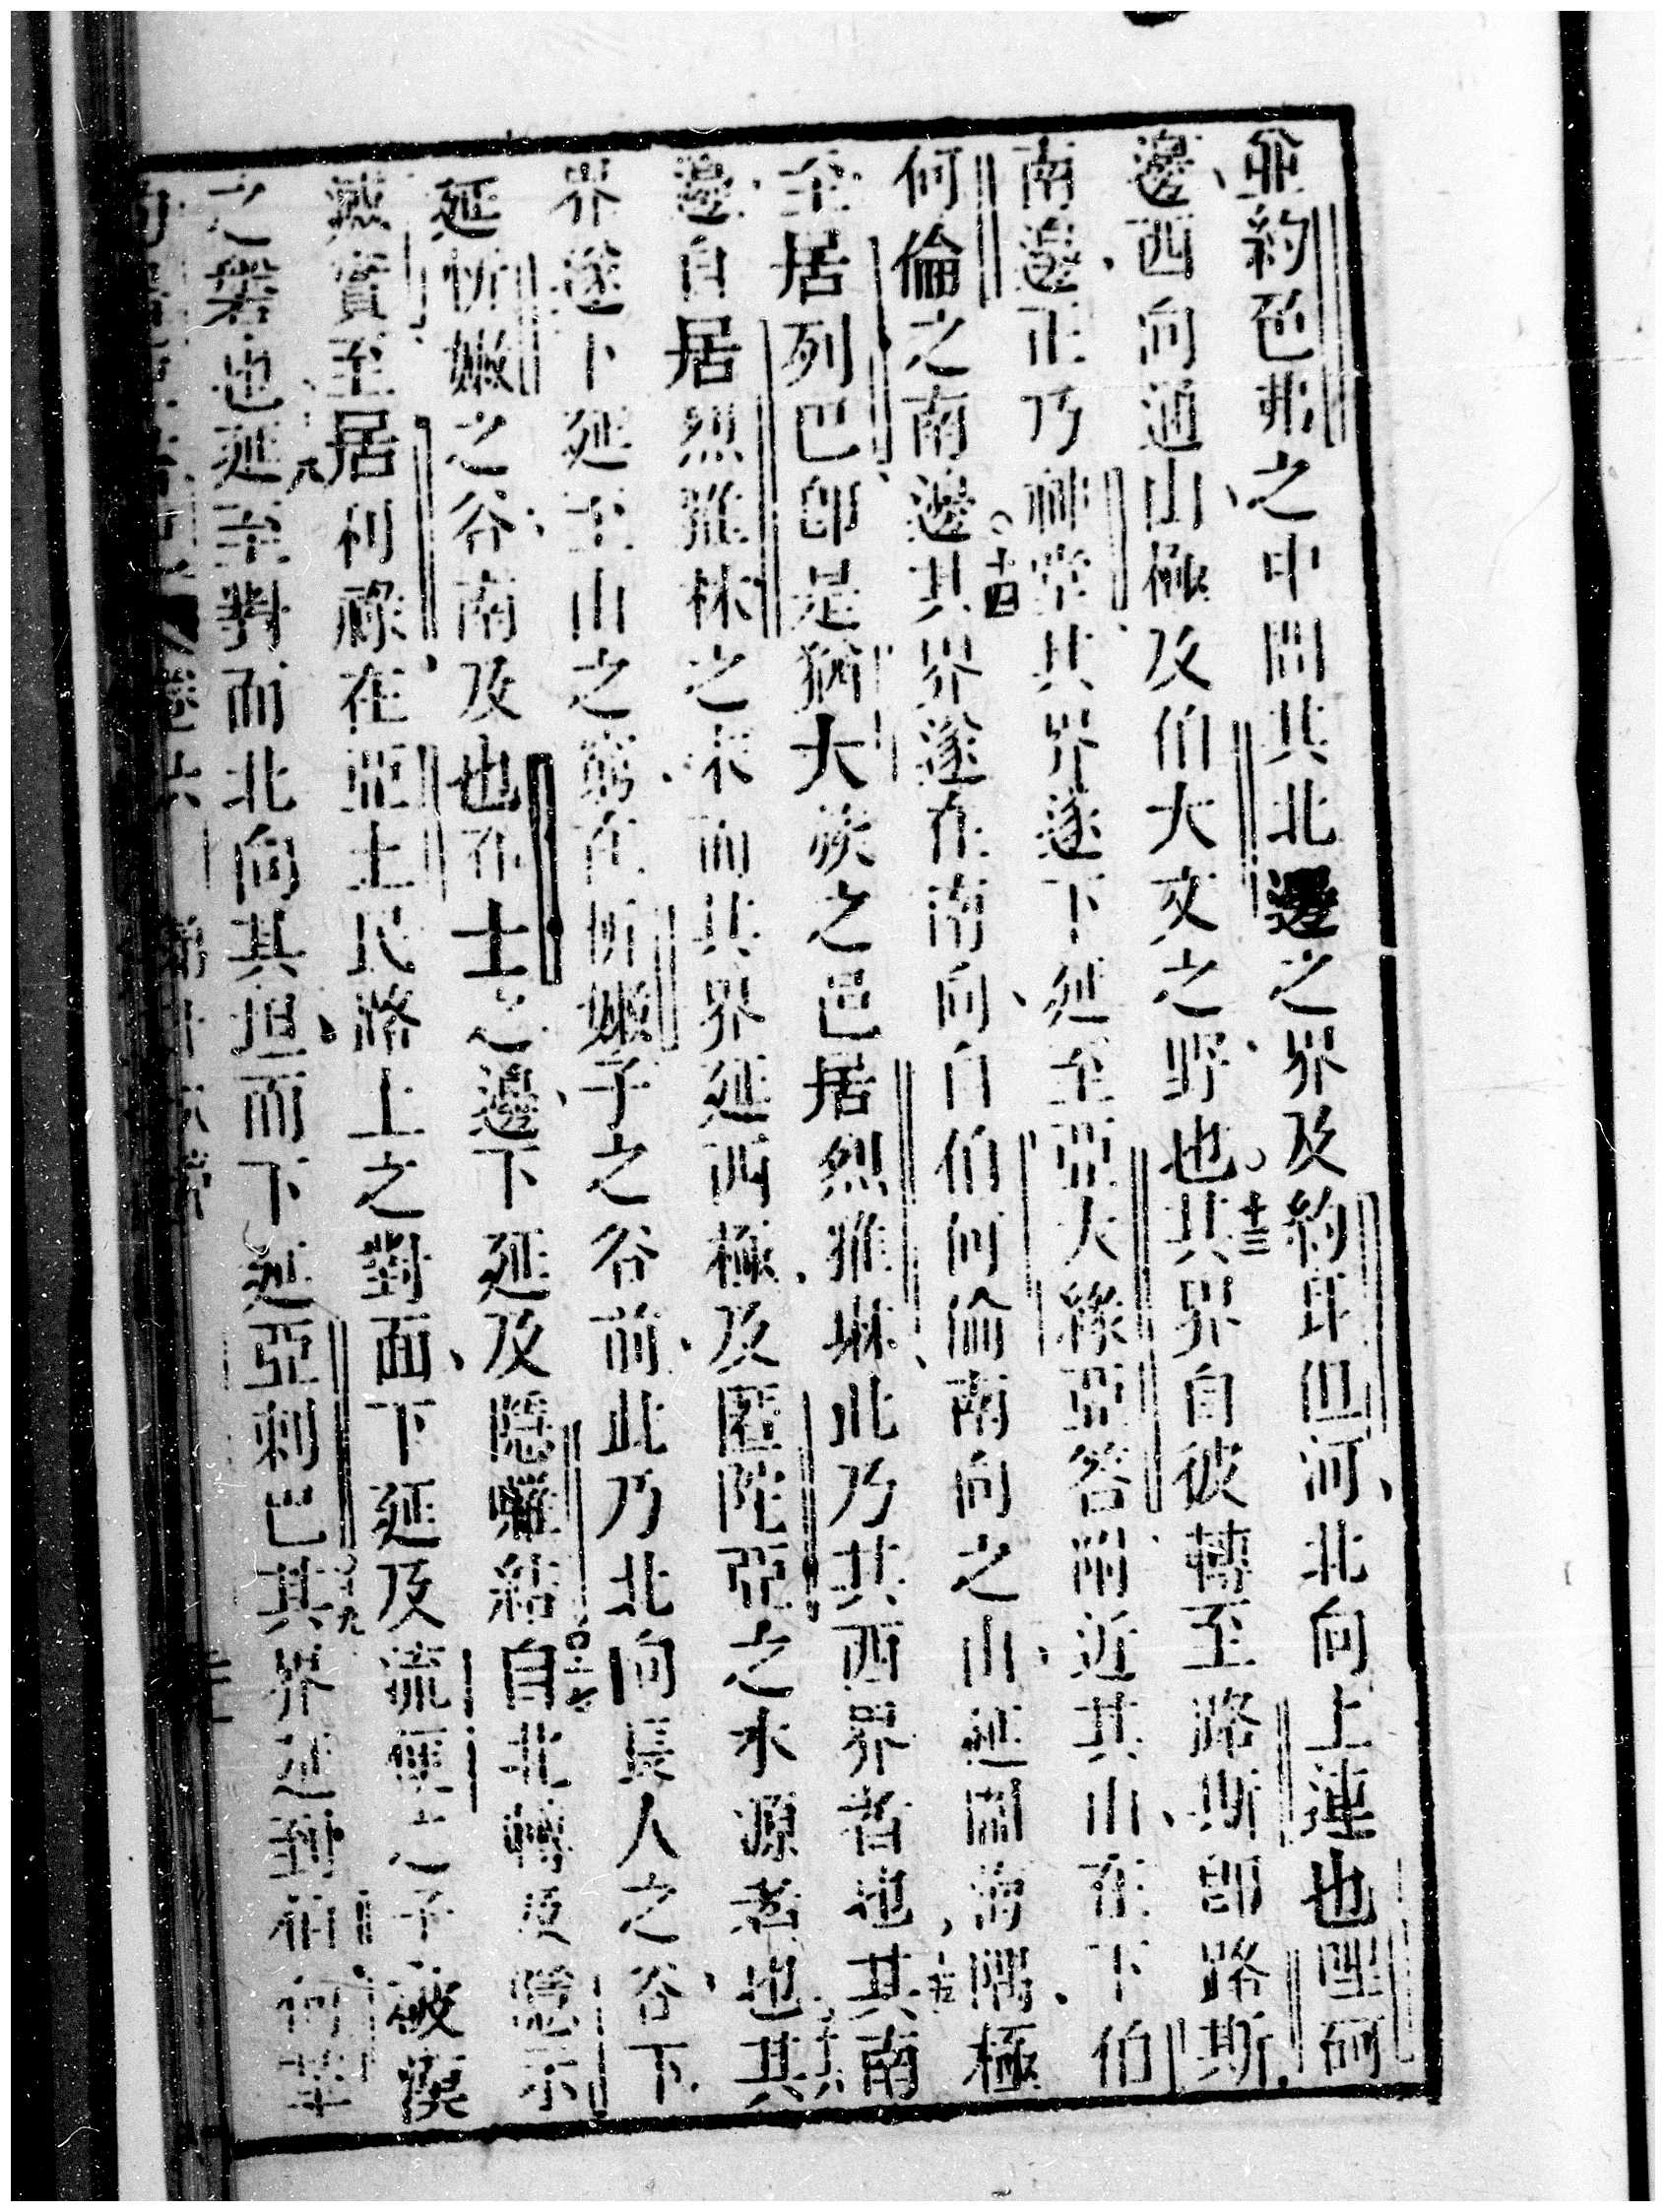 並約色弗之中間其北邊之界及約耳但河、北向上遳也耶砢
邊、西向通山、極及伯大文之野也。十三其界自彼轉至路斯卽路斯
南邊、正乃神堂、其界遂下延至亞大綠亞答、附近其山、在下伯
何倫之南邊。十四其界遂在南向、自伯何倫南向之山、延圍海隅、極
至居列巴卽是猶大族之邑居烈雅琳、此乃其西界者也、十五其南
邊、自居烈雅林之末、而其界延西極、及匿陀亞之水源者也、十六其
界遂下延至山之窮、在忻嫩子之谷前、此乃北向長人之谷、下
延忻嫩之谷、南及也布士之邊、下延及隱囉結、十七自北轉及隱示
滅實至居利祿、在亞土民路上之對面、下延及流便之子破
之磐也、十八延至對而北向其坦、而下延亞剌巴、十九其界延